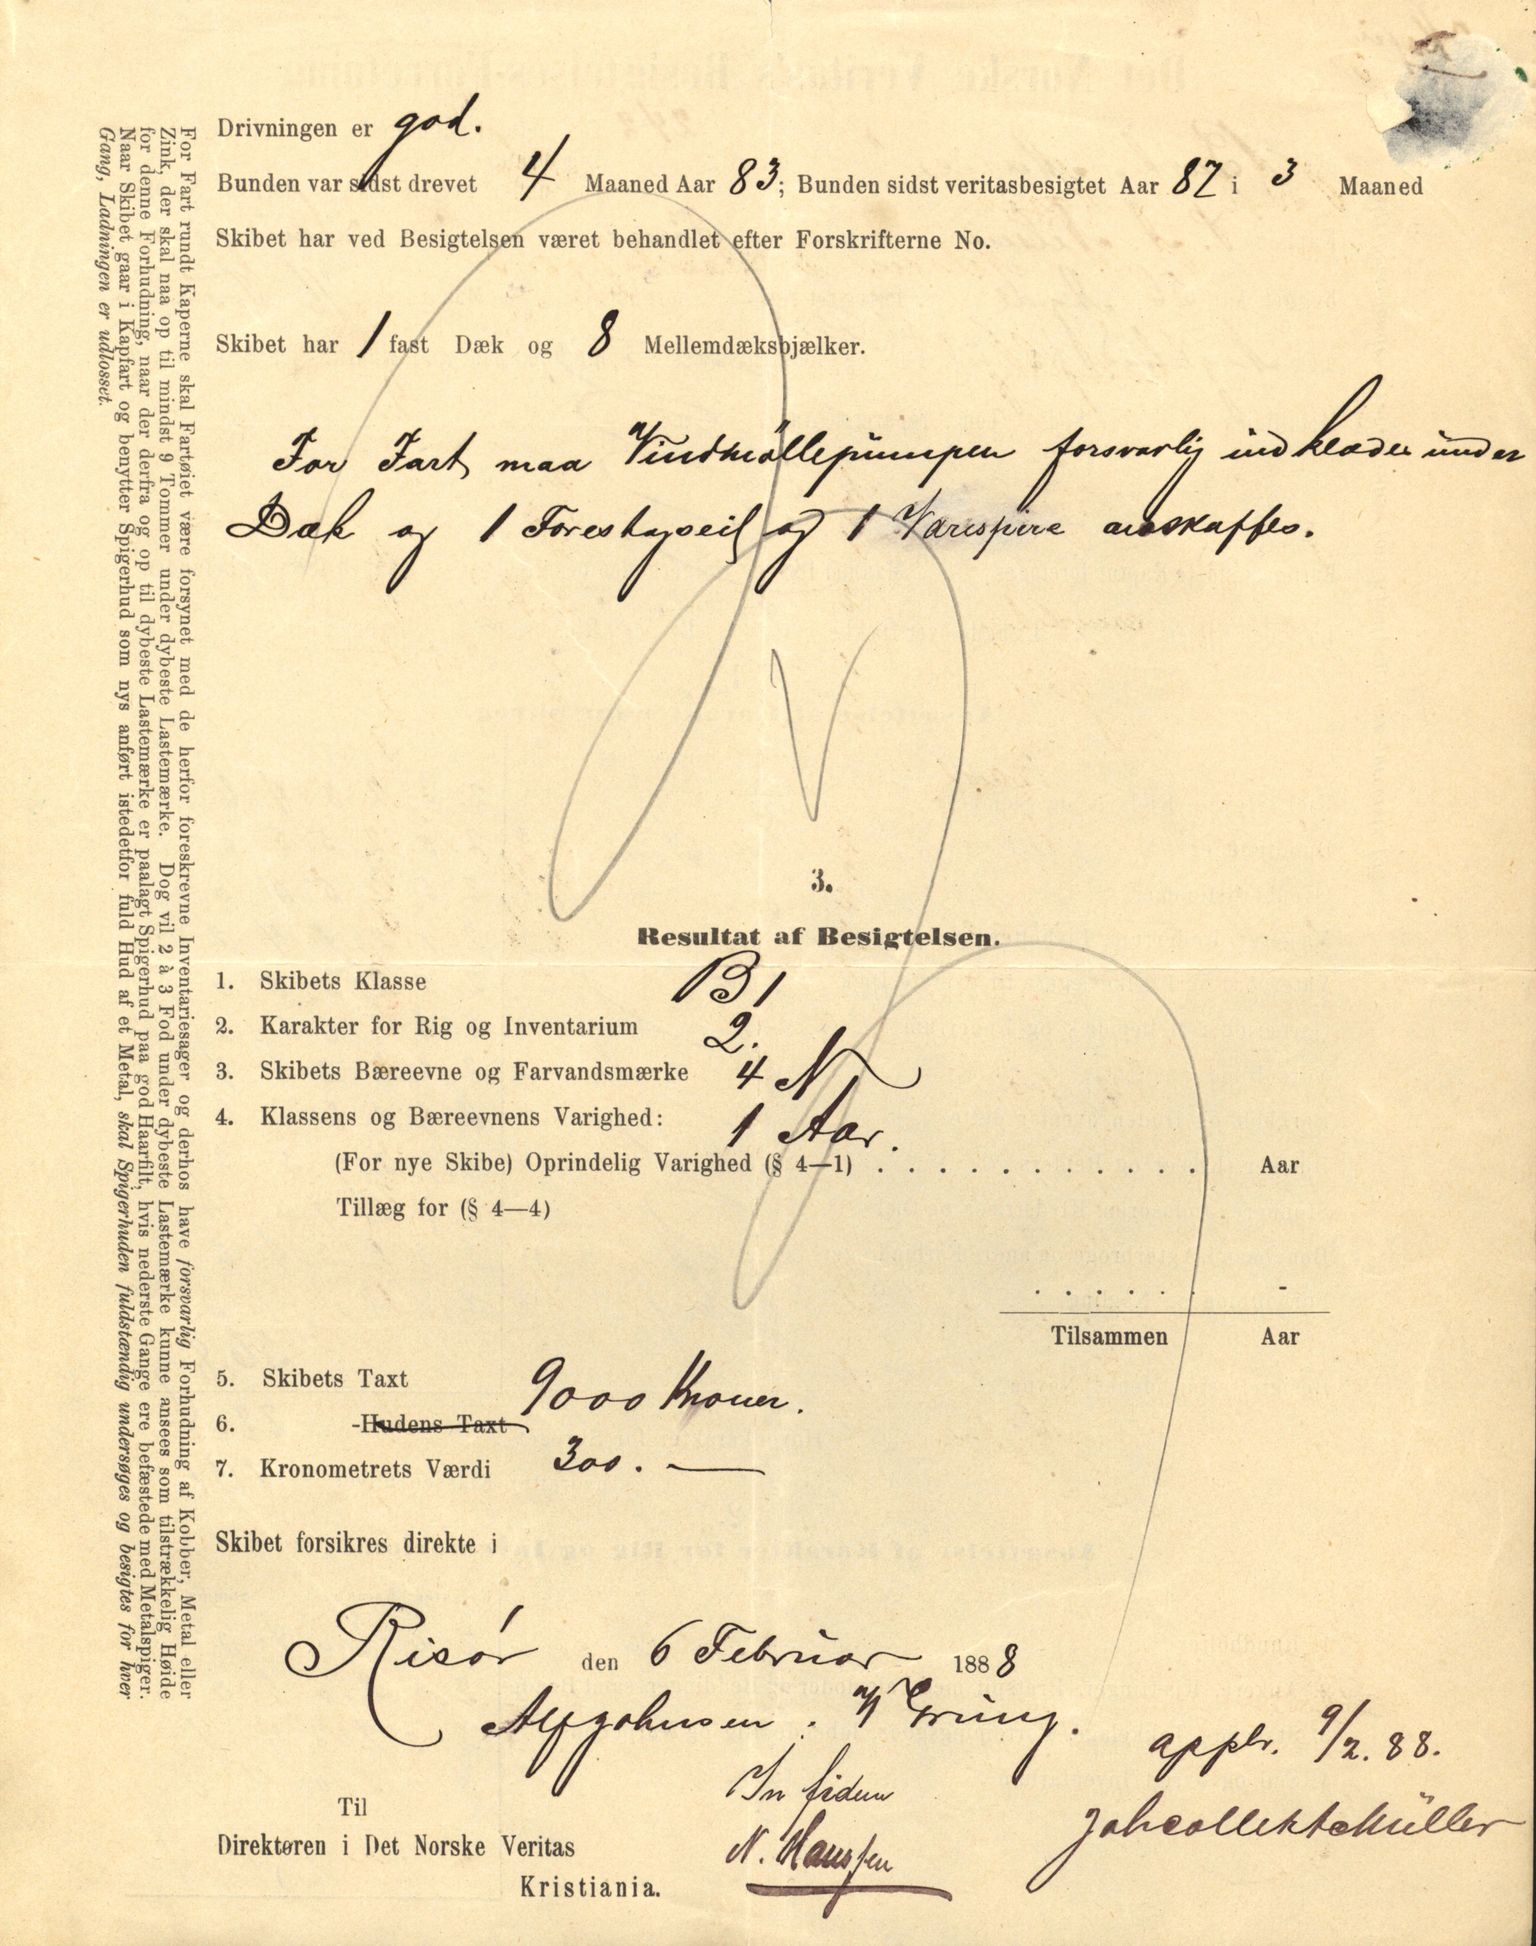 Drivningen er god.
Bunden var sidst drevet 4 Maaned Aar 83; Bunden sidst veritasbesigtet Aar 87 i 3 Maaned
Skibet har ved Besigtelsen været behandlet efter Forskrifterne No.
Skibet har 1 fast Dæk og 8 Mellemdæksbjælker.
For Fart maa Vindmøllepumpen forsvarlig indklædes under
Dæk og 1 Forestagseil og 1 Varespire anskaffes.
3.
Resultat af Besigtelsen.
1. Skibets Klasse B 1
2. Karakter for Rig og Inventarium 2.
3. Skibets Bæreevne og Farvandsmærke 4 N
4. Klassens og Bæreevnens Varighed: 1 Aar.
(For nye Skibe) Oprindelig Varighed (§ 4—1) . . . . . . . . . . . . Aar
Tillæg for (§ 4—4)
. . . . . . -
Tilsammen Aar
5. Skibets Taxt 9000 Kroner.
6. -Hudens Taxt
7. Kronometrets Værdi 300. —
Skibet forsikres direkte i
Risør den 6 Februar 1888
Alf Johnsen. N Grung.
appbr. 9/2. 88.
In fidem
Joh Collett Müller
N. Hanssen
Til
Direktøren i Det Norske Veritas
Kristiania.
For Fart rundt Kaperne skal Fartøiet være forsynet med de herfor foreskrevne Inventariesager og derhos have forsvarlig Forhudning af Kobber, Metal eller
Zink, der skal naa op til mindst 9 Tommer under dybeste Lastemærke. Dog vil 2 à 3 Fod under dybeste Lastemærke kunne ansees som tilstrækkelig Høide
for denne Forhudning, naar der derfra og op til dybeste Lastemærke er paalagt Spigerhud paa god Haarfilt, hvis nederste Gange ere befæstede med Metalspiger.
Naar Skibet gaar i Kapfart og benytter Spigerhud som nys anført istedetfor fuld Hud af et Metal, skal Spigerhuden fuldstændig undersøges og besigtes for hver
Gang, Ladningen er udlosset.